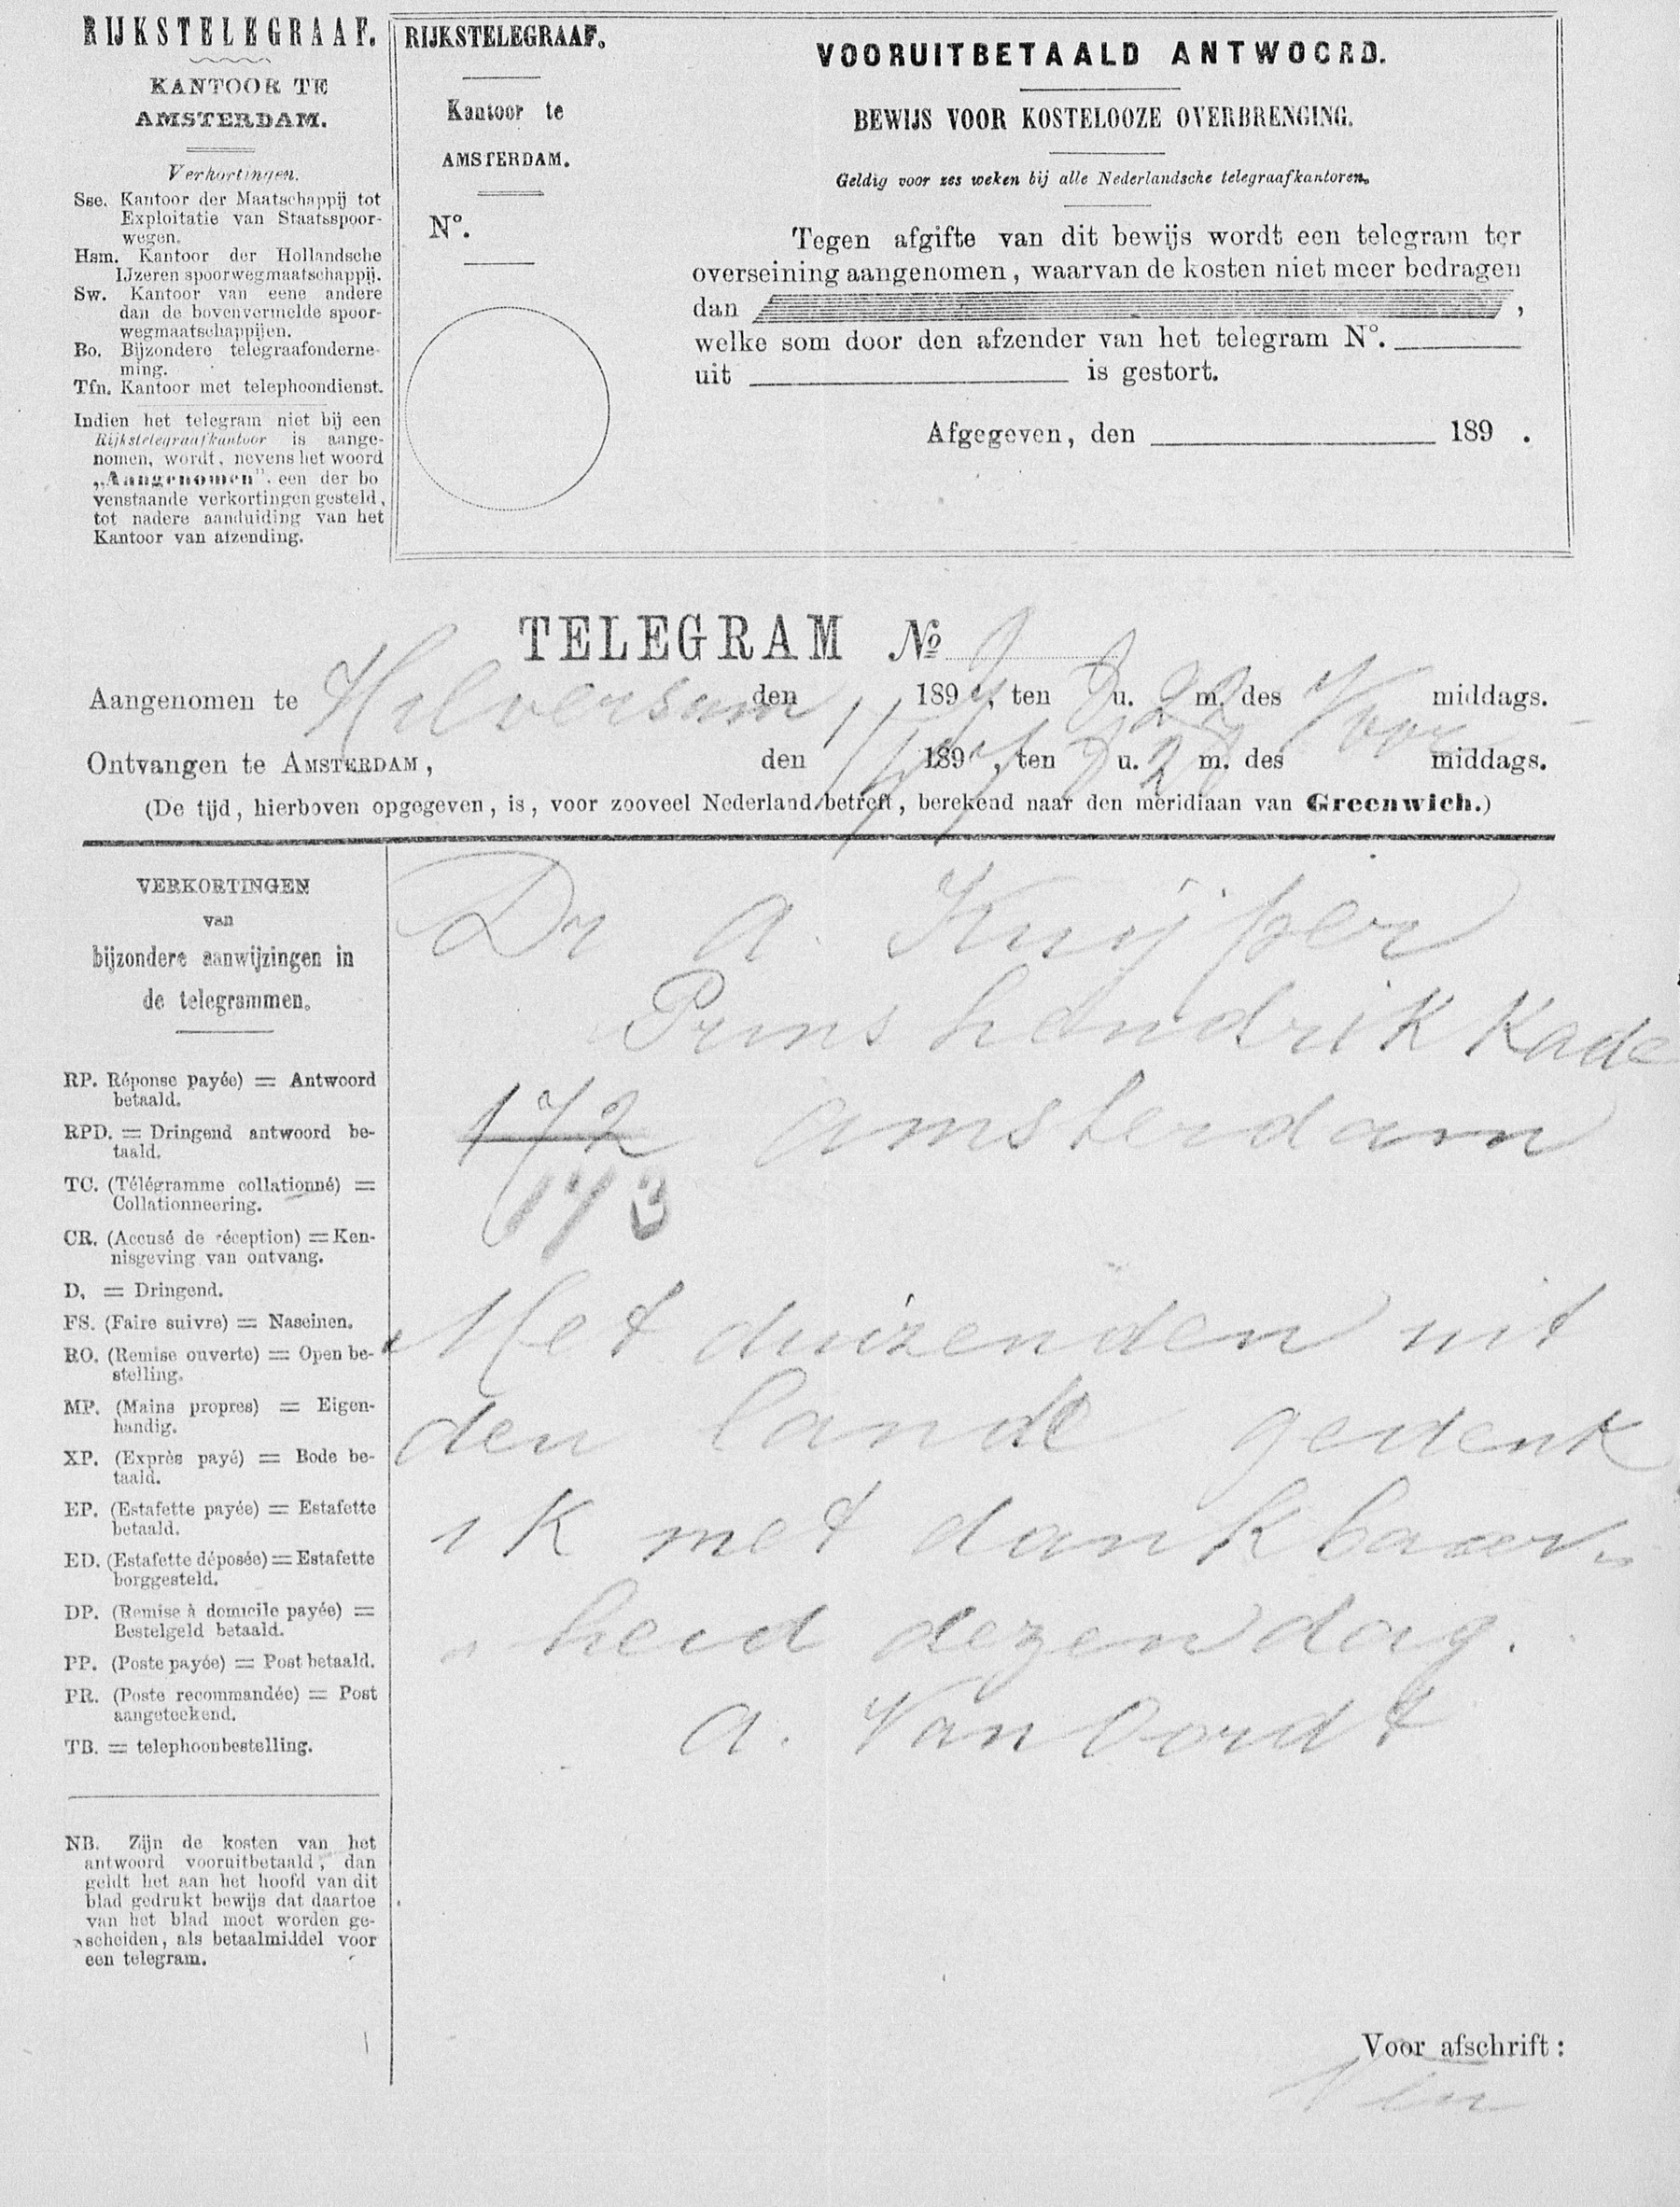 RIJKSTELEGRAAF.
KANTOOR TE
AMSTERDAM.
Verkortingen.
Sse. Kantoor der Maatschappij tot
Exploitatie van Staatsspoor-
wegen.
Hsm. Kantoor der Hollandsche
IJzeren spoorwegmaatschappij.
Sw. Kantoor van eene andere
dan de bovenvermelde spoor-
wegmaatschappijen.
Bo. Bijzondere telegraafonderne-
ming.
Tfn. Kantoor met telephoondienst.
Indien het telegram niet bij een
Rijkstelegraafkantoor is aange-
nomen, wordt, nevens het woord
„Aangenomen", een der bo
venstaande verkortingen gesteld,
tot nadere aanduiding van het
Kantoor van afzending.
RIJKSTELEGRAAF.
Kantoor te
AMSTERDAM.
N°.
VOORUITBETAALD ANTWOORD.
BEWIJS VOOR KOSTELOOZE OVERBRENGING.
Geldig voor zes weken bij alle Nederlandsche telegraafkantoren.
Tegen afgifte van dit bewijs wordt een telegram ter
overseining aangenomen, waarvan de kosten niet meer bedragen
dan ,
welke som door den afzender van het telegram N°.
uit is gestort.
Afgegeven, den 189 .
TELEGRAM No
Aangenomen te Hilversum den 1/4 1897, ten 8 u. 22 m. des Voor middags.
Ontvangen te AMSTERDAM, den 1/4 1897, ten 8 u. 28 m. des middags.
(De tijd, hierboven opgegeven, is, voor zooveel Nederland betreft, berekend naar den meridiaan van Greenwich.)
VERKORTINGEN
van
bijzondere aanwijzingen in
de telegrammen.
RP. Réponse payée) = Antwoord
betaald.
RPD. = Dringend antwoord be-
taald.
TC. (Télégramme collationné) =
Collationneering.
CR. (Accusé de réception) = Ken-
nisgeving van ontvang.
D. = Dringend.
FS. (Faire suivre) = Naseinen.
RO. (Remise ouverte) = Open be-
stelling.
MP. (Mains propres) = Eigen-
handig.
XP. (Exprès payé) = Bode be-
taald.
EP. (Estafette payée) = Estafette
betaald.
ED. (Estafette déposée) = Estafette
borggesteld.
DP. (Remise à domicile payée) =
Bestelgeld betaald.
PP. (Poste payée) = Post betaald.
PR. (Poste recommandée) = Post
aangeteekend.
TB. = telephoonbestelling.
NB. Zijn de kosten van het
antwoord vooruitbetaald, dan
geldt het aan het hoofd van dit
blad gedrukt bewijs dat daartoe
van het blad moet worden ge-
scheiden, als betaalmiddel voor
een telegram.
Dr A. Kuijper
Prins hendrik Kade
172 Amsterdam
173
Met duizenden uit
den lande gedenk
ik met dankbaar-
heid dezen dag.
A. Van Oordt
Voor afschrift: